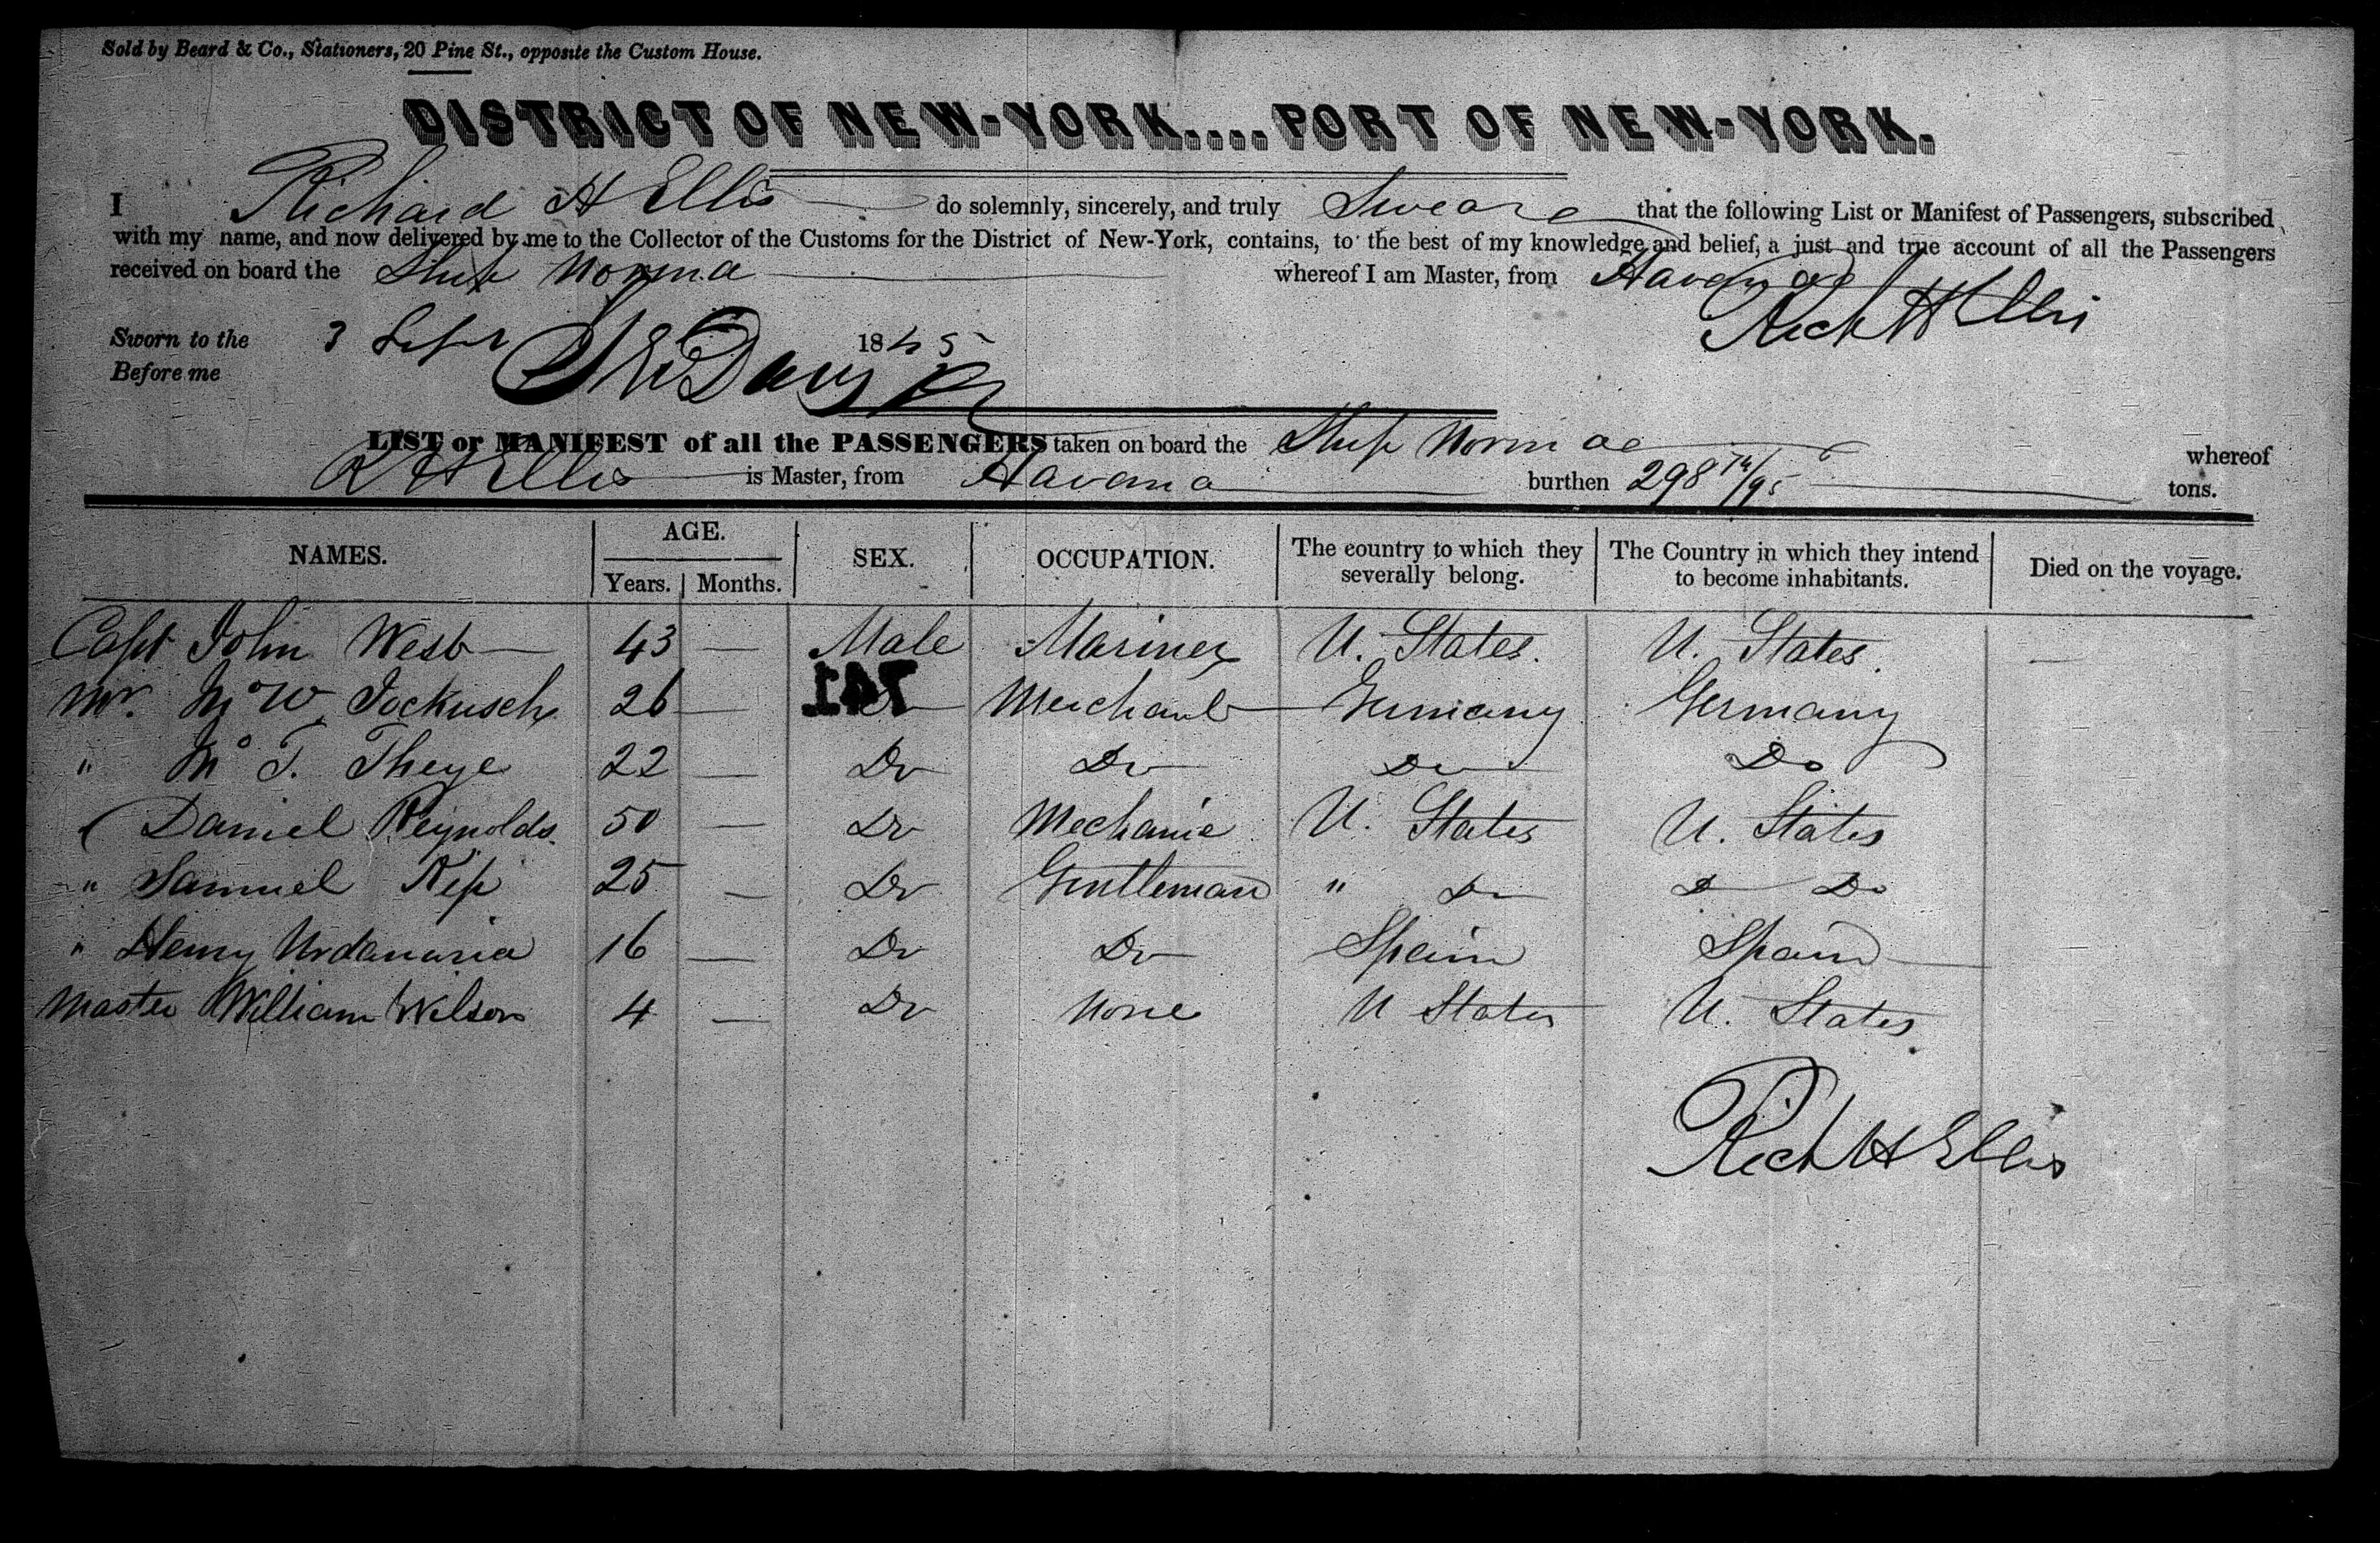 Sold by Beard & Co., Stationers, 20 Pine St., opposite the Custom House.
DISTRICT OF NEW-YORK....PORT OF NEW-YORK.
I Richard H Ellis do solemnly, sincerely, and truly Sweare that the following List or Manifest of Passengers, subscribed
with my name, and now delivered by me to the Collector of the Customs for the District of New-York, contains, to the best of my knowledge and belief, a just and true account of all the Passengers
received on board the Ship Norma whereof I am Master, from Havana
Rich H Ellis
Sworn to the 3 Sept 1845
Before me
LIST or MANIFEST of all the PASSENGERS taken on board the Ship Norma whereof
R H Ellis is Master, from Havana burthen 298 74/95 tons.
NAMES. AGE. Years. Months. SEX. OCCUPATION. The country to which they severally belong. The Country in which they intend to become inhabitants. Died on the voyage.
Capt John West 43 — Male Mariner U. States. U. States. —
Mr. W. Jockusch 26 — 141 Merchant Germany Germany
" T. Theye 22 — Do Do Do Do
Daniel Reynolds. 50 — Do Mechanic U. States U. States
" Samuel Kip 25 — Do Gentleman " Do Do Do
" Henry Urdanaria 16 — Do Do Spain Spain
Master William Wilson 4 — Do None U States U. States
Rich H Ellis